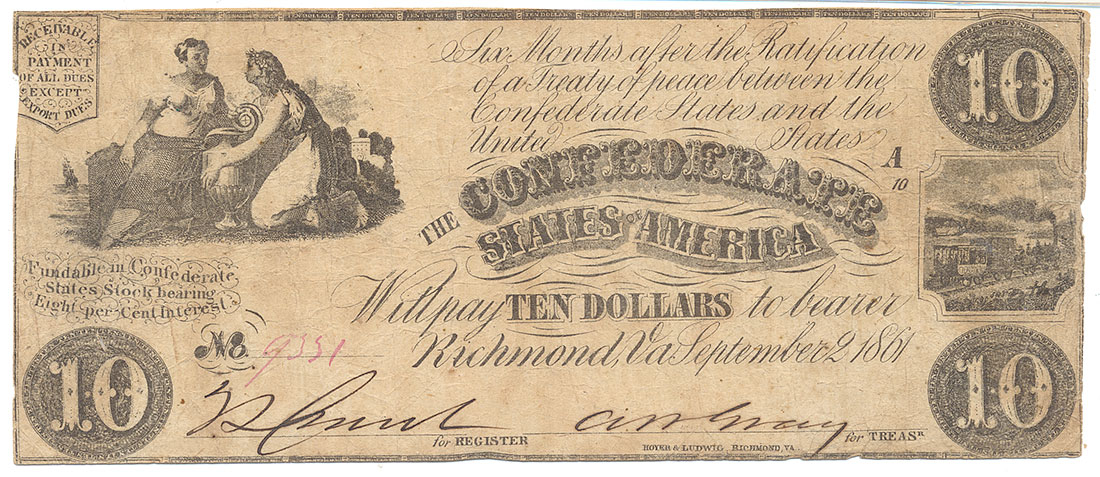 TEN DOLLARS TEN DOLLARS TEN DOLLARS TEN DOLLARS TEN DOLLARS
RECEIVABLE
IN
PAYMENT
OF ALL DUES
EXCEPT
EXPORT DUES
Six Months after the Ratification
of a Treaty of peace between the
Confederate States and the
United States
10
A
10
THE CONFEDERATE
STATES OF AMERICA
Fundable in Confederate
States Stock bearing
Eight per Cent Interest
Will pay TEN DOLLARS to bearer
No. 9351
Richmond, Va September 2 1861
10
10
for REGISTER
for TREASR
HOYER & LUDWIG, RICHMOND, VA.